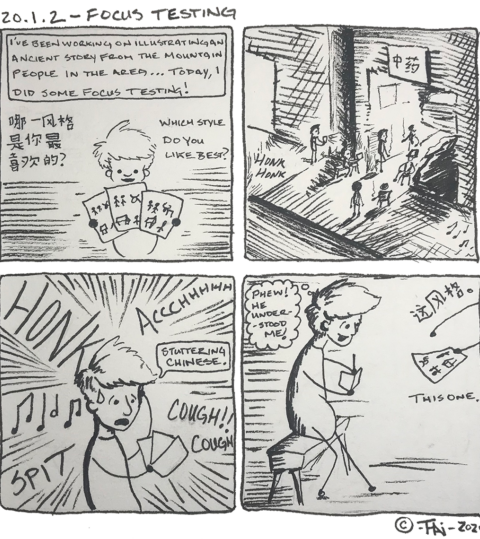 20.1.2 – FOCUS TESTING
I'VE BEEN WORKING ON ILLUSTRATING AN
ANCIENT STORY FROM THE MOUNTAIN
PEOPLE IN THE AREA... TODAY, I
DID SOME FOCUS TESTING!
哪一风格
是你最
喜欢的?
WHICH STYLE
DO YOU
LIKE BEST?
中药
HONK
HONK
HONK
ACCCHHHHHH
STUTTERING
CHINESE.
COUGH!!
COUGH
SPIT
PHEW!
HE
UNDER-
-STOOD
ME!
这风格。
THIS ONE.